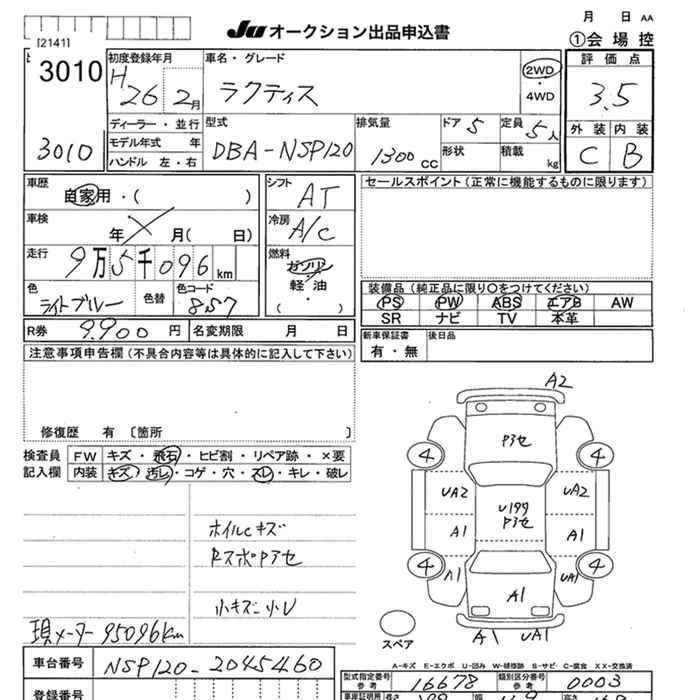 月 日 AA
JU オークション出品申込書
①会場控
[2141]
3010
初度登録年月
H 26 2月
車名・グレード
ラクティス
2WD
・
4WD
評価点
3.5
外装 内装
C B
3010
ディーラー・並行
モデル年式 年
ハンドル 左・右
型式
DBA-NSP120
排気量
1300cc
ドア 5
形状
定員 5人
積載 kg
車歴
自家用・( )
車検
年 月( 日)
走行
9万5千096km
色
ライトブルー
色替
色コード
8S7
シフト
AT
冷房
A/C
燃料
ガソリン
軽油
( ・ )
セールスポイント(正常に機能するものに限ります)
装備品(純正品に限り○をつけてください)
PS PW ABS エアB AW
SR ナビ TV 本革
R券 9,900円 名変期限 月 日
新車保証書
有・無
後日品
注意事項申告欄(不具合内容等は具体的に記入して下さい)
修復歴 有〔箇所 〕
検査員
記入欄
FW キズ・飛石・ヒビ割・リペア跡・×要
内装 キズ・汚レ・コゲ・穴・スレ・キレ・破レ
ホイルcキズ
RスポPワセ
小キズ小U
現メーター95096km
A2
Pワセ
4 4
UA2 UA2
U199
Pワセ
A1 A1
4 4
A1 UA1
A1
A1 UA1
スペア
A-キズ E-エクボ U-凹み W-補修跡 S-サビ C-腐食 XX-交換済
車台番号 NSP120-2045460
型式指定番号 16678 類別区分番号 0003
登録番号
車庫証明用 長さ 幅 高さ